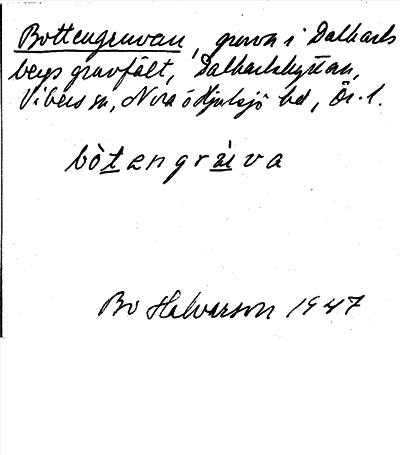 Bottengruvan, gruva i Dalkarls
bergs gruvfält, Dalkarlshyttan,
Vibers sn, Nora o Hjulsjö bd, Ör. l.
bòtengrùva
Bo Halvarson 1947